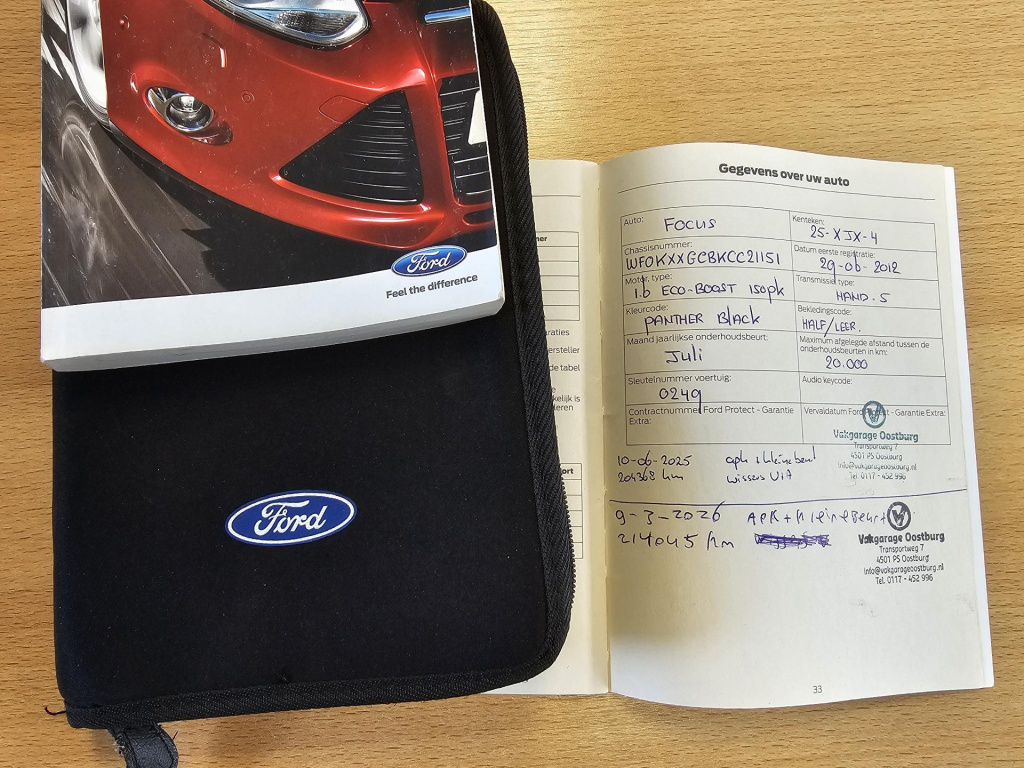 Ford
Feel the difference
Ford
mer
raties
ersteller
de tabel
kelijk is
deren
ort
Gegevens over uw auto
Auto: FOCUS
Kenteken: 25-XJX-4
Chassisnummer: WF0KXXGCBKCC21151
Datum eerste registratie: 29-06-2012
Motor, type: 1.6 ECO-BOOST 150pk
Transmissie, type: HAND.5
Kleurcode: PANTHER BlACK
Bekledingscode: HALF/LEER.
Maand jaarlijkse onderhoudsbeurt: Juli
Maximum afgelegde afstand tussen de
onderhoudsbeurten in km: 20.000
Sleutelnummer voertuig: 0249
Audio keycode:
Contractnummer Ford Protect - Garantie
Extra:
Vervaldatum Ford Protect - Garantie Extra:
Vakgarage Oostburg
Transportweg 7
4501 PS Oostburg
info@vakgarageoostburg.nl
Tel. 0117 - 452 996
10-06-2025 apk + kleine beurt
204368 km wissers V+A
9-3-2026 APK + Kleine Beurt
214045 km
Vakgarage Oostburg
Transportweg 7
4501 PS Oostburg
info@vakgarageoostburg.nl
Tel. 0117 - 452 996
33